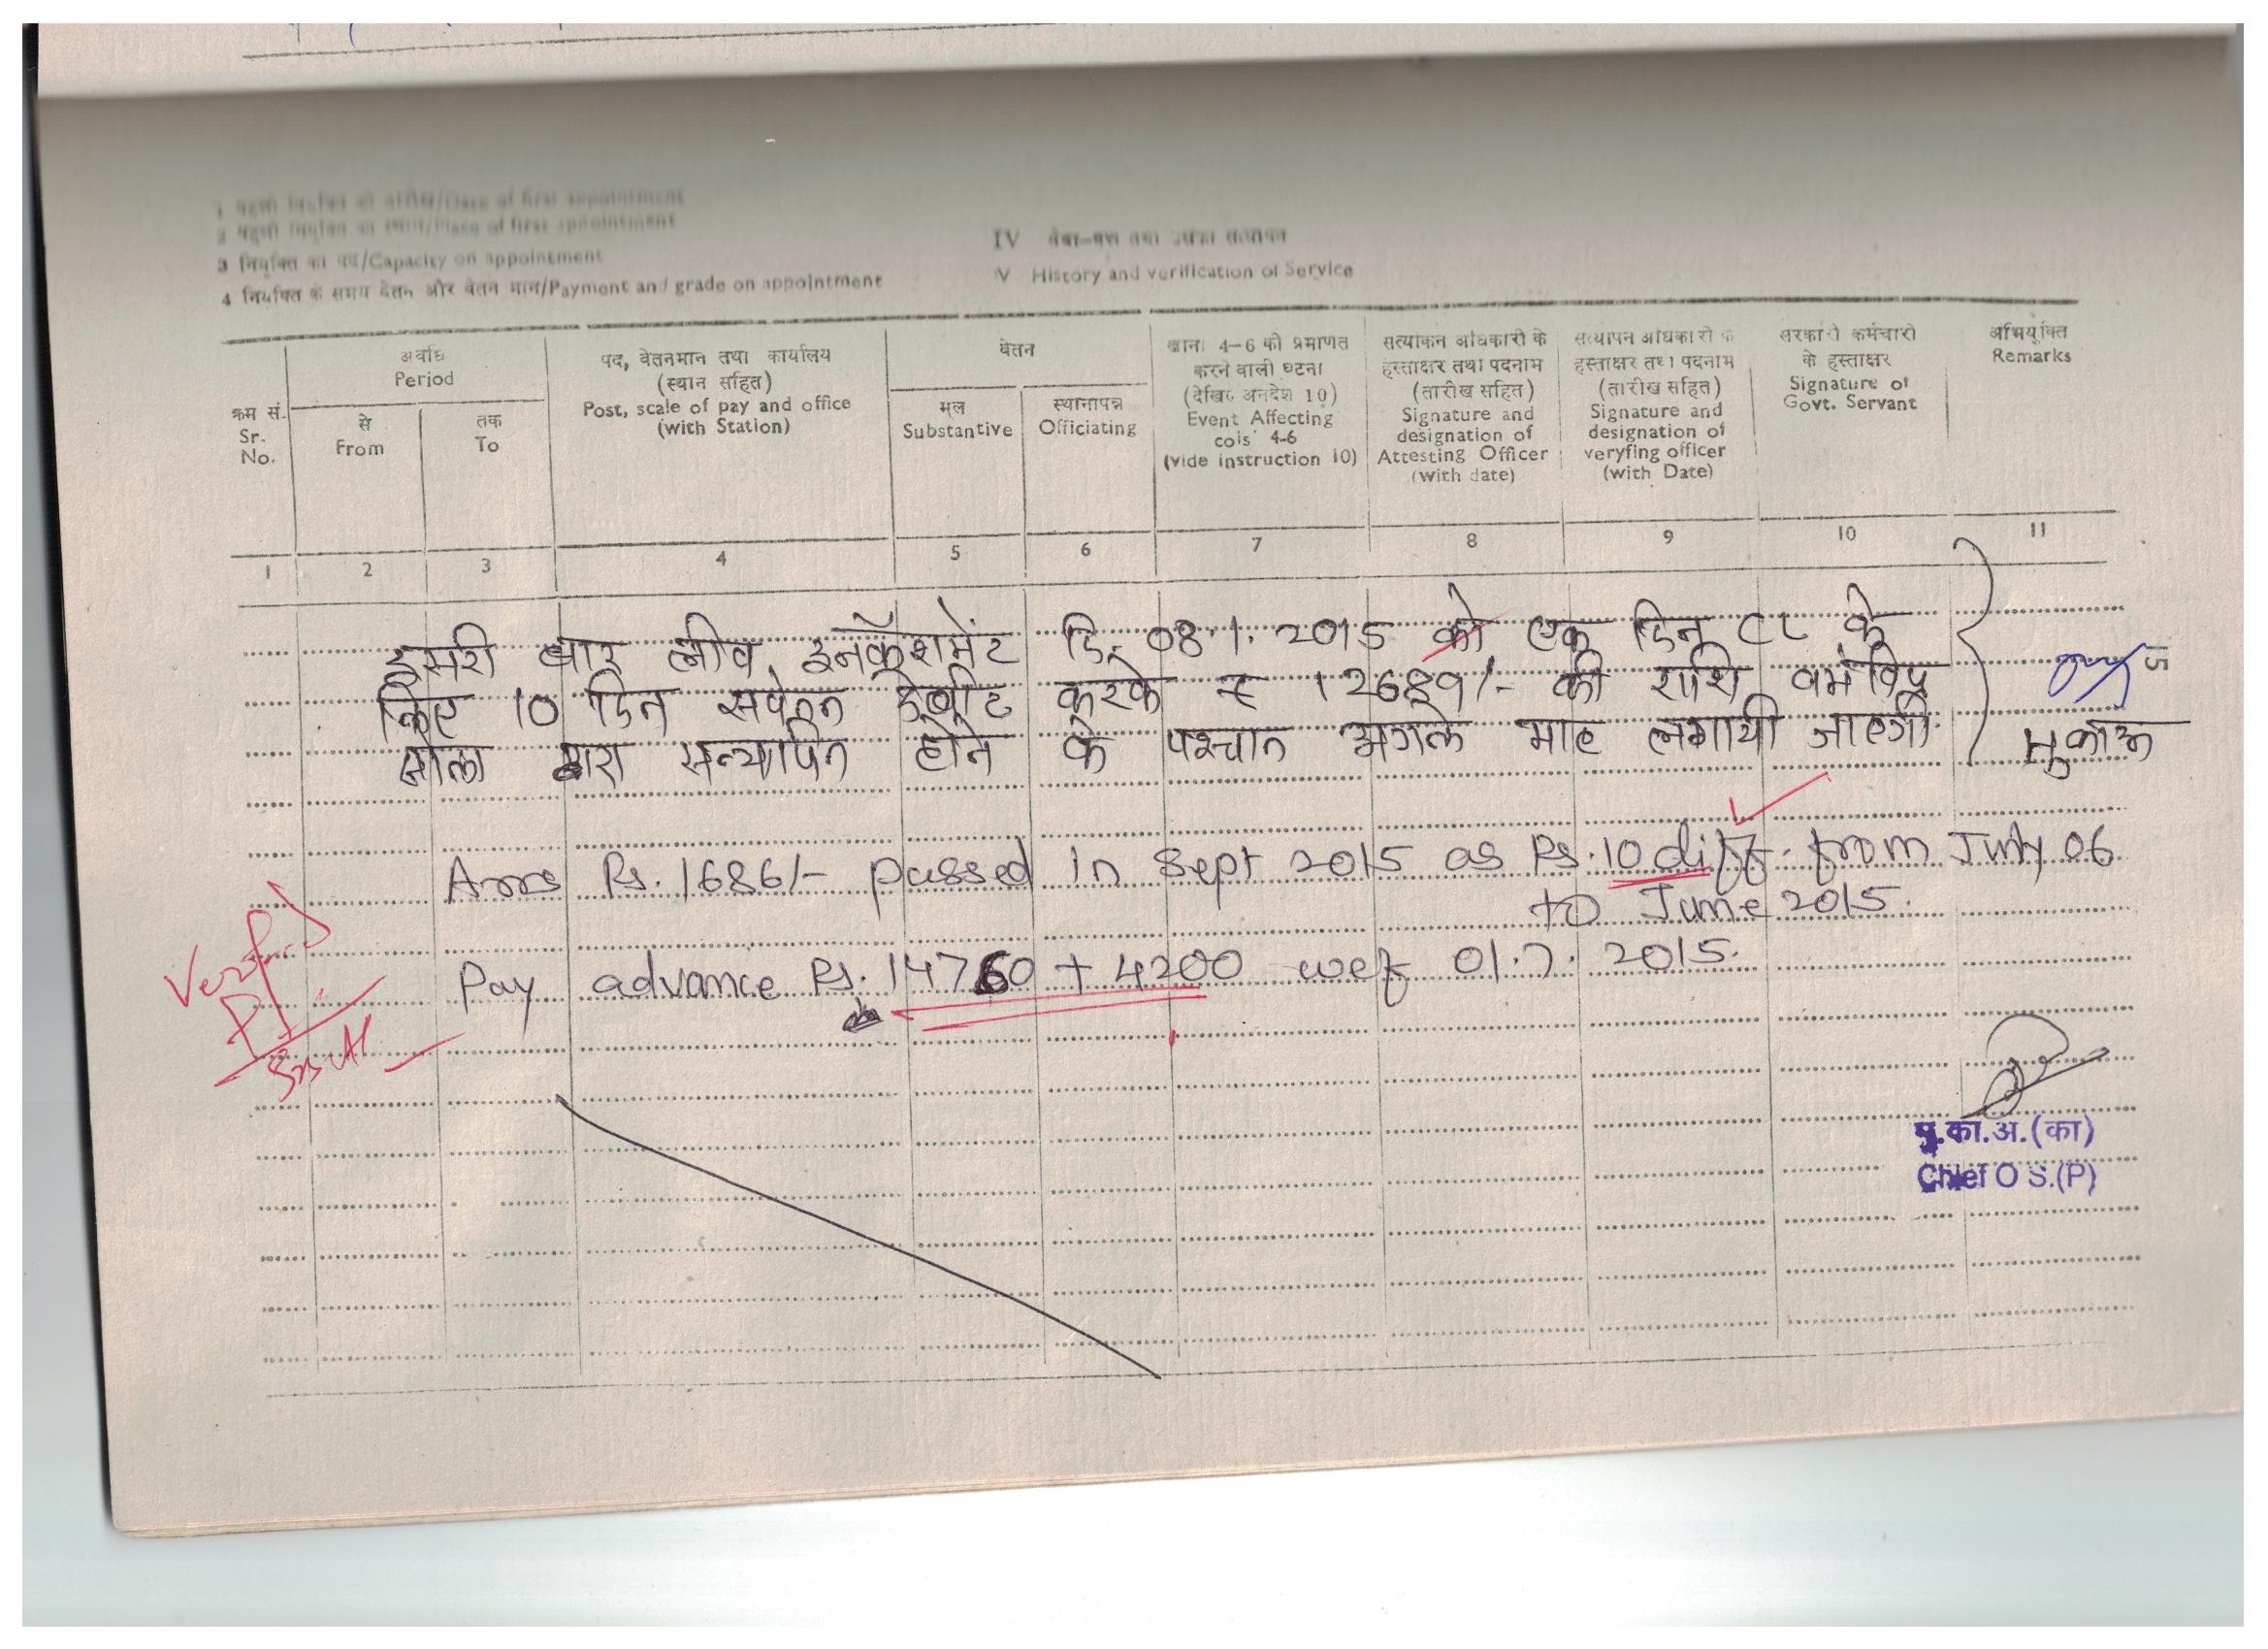 1 पहली नियुक्ति की तारीख/Date of first appointment
2 पहली नियुक्ति का स्थान/Place of first appointment
3 नियुक्ति का पद/Capacity on appointment
4 नियुक्ति के समय वेतन और वेतन मान/Payment and grade on appointment
IV सेवा-वृत्त तथा उसका सत्यापन
V History and verification of Service
क्रम सं.
Sr.
No.
अवधि
Period
से
From
तक
To
पद, वेतनमान तथा कार्यालय
(स्थान सहित)
Post, scale of pay and office
(with Station)
वेतन
मूल
Substantive
स्थानापन्न
Officiating
खाना 4-6 की प्रमाणत
करने वाली घटना
(देखिए अनदेश 10)
Event Affecting
cols' 4-6
(vide instruction 10)
सत्यांकन अधिकारी के
हस्ताक्षर तथा पदनाम
(तारीख सहित)
Signature and
designation of
Attesting Officer
(with date)
सत्यापन अधिकारी के
हस्ताक्षर तथा पदनाम
(तारीख सहित)
Signature and
designation of
veryfing officer
(with Date)
सरकारी कर्मचारी
के हस्ताक्षर
Signature of
Govt. Servant
अभियुक्ति
Remarks
1 2 3 4 5 6 7 8 9 10 11
दुसरी बार लीव इनकॅशमेंट दि. 08.1.2015 को एक दिन CL के
लिए 10 दिन सवेतन डेबीट करके रु 12689/- की राशि वमंविप्र
सोला द्वारा सत्यापित होने के पश्चात अगले माह लगायी जाएगी.
मुकाअ
Arrs Rs. 1686/- passed in Sept 2015 as Rs. 10 diff. from July 06
to June 2015.
Pay advance Rs. 14760 + 4200 wef 01.7.2015.
Verified
मु.का.अ.(का)
Chief O S.(P)